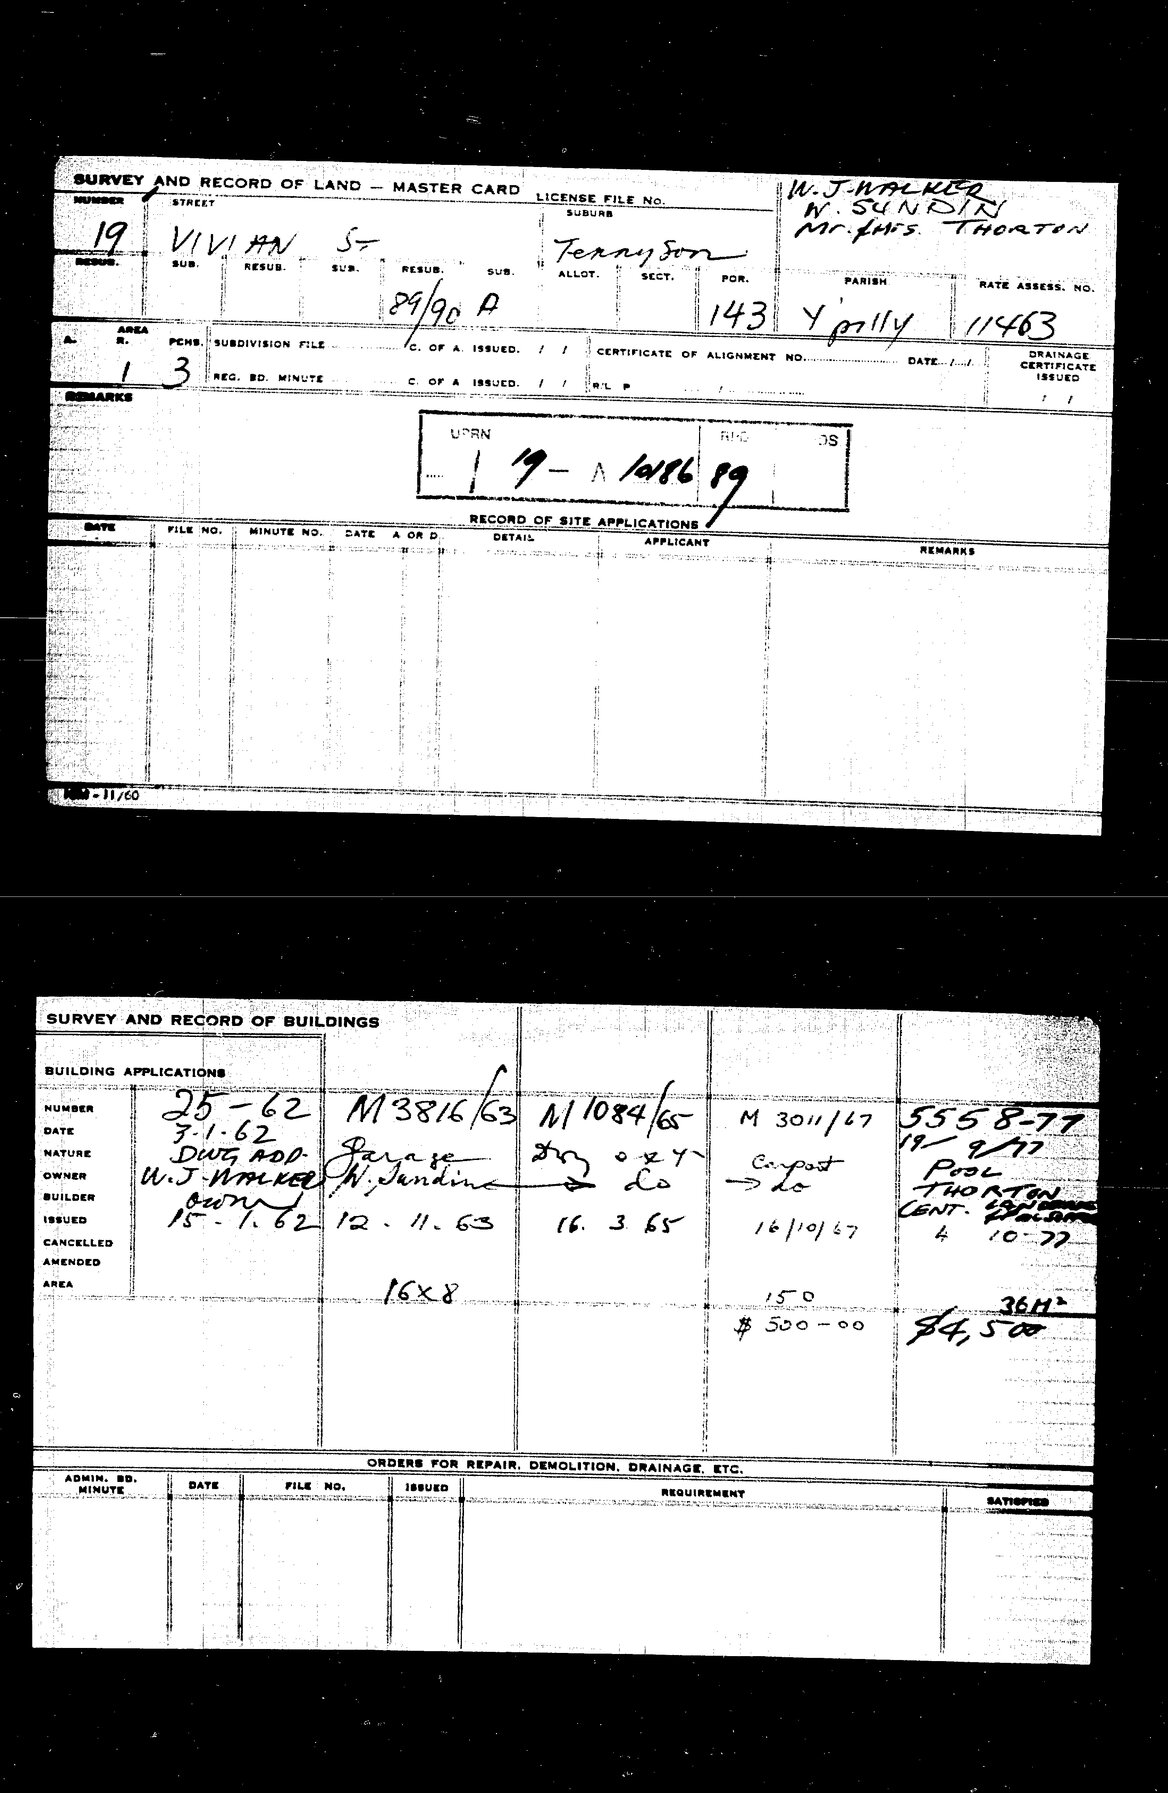 SURVEY AND RECORD OF LAND — MASTER CARD
LICENSE FILE No.
W. J. WALKER
W. SUNDIN
Mr. & Mrs. THORTON
NUMBER STREET SUBURB
19 VIVIAN St Tennyson
RESUB. SUB. RESUB. SUB. RESUB. SUB. ALLOT. SECT. POR. PARISH RATE ASSESS. NO.
89/90 A 143 Y'pilly 11463
AREA
A. R. PCHS.
1 3
SUBDIVISION FILE C. OF A. ISSUED. / / CERTIFICATE OF ALIGNMENT NO. DATE / /
REG. BD. MINUTE C. OF A ISSUED. / / R/L P /
DRAINAGE
CERTIFICATE
ISSUED
/ /
REMARKS
UPRN
1 19 — A 10186 89
RECORD OF SITE APPLICATIONS
DATE FILE NO. MINUTE NO. DATE A OR D. DETAIL APPLICANT REMARKS
11/60
SURVEY AND RECORD OF BUILDINGS
BUILDING APPLICATIONS
NUMBER 25-62 M3816/63 M1084/65 M 3011/67 5558-77
DATE 3.1.62 19/ 9/77
NATURE DWG ADD. Garage Carport POOL
OWNER W.J. WALKER W. Sundin → do → do THORTON
BUILDER owner CENT.
ISSUED 15.1.62 12.11.63 16.3.65 16/10/67 4 10-77
CANCELLED
AMENDED
AREA 16x8 150 36M²
$ 500-00 $4,500
ORDERS FOR REPAIR, DEMOLITION, DRAINAGE, ETC.
ADMIN. BD. MINUTE DATE FILE NO. ISSUED REQUIREMENT SATISFIED